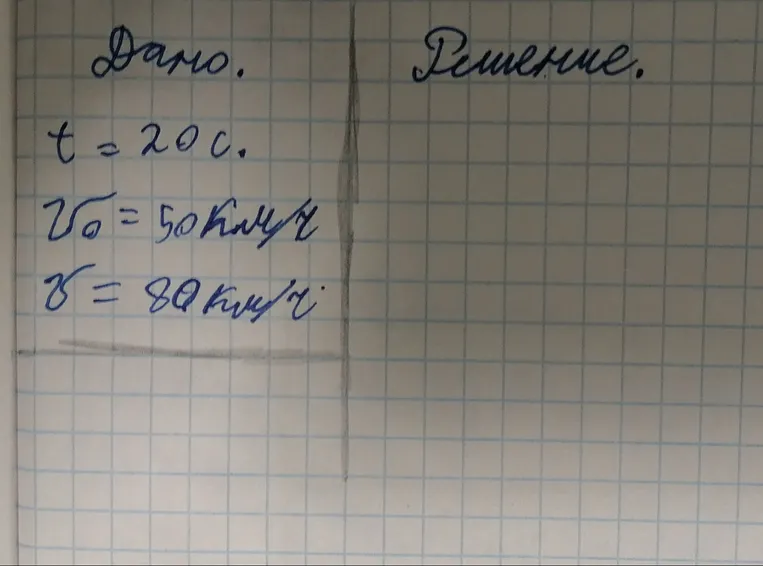 Дано.
Решение.
t = 20 с.
v₀ = 50 км/ч
v = 80 км/ч.